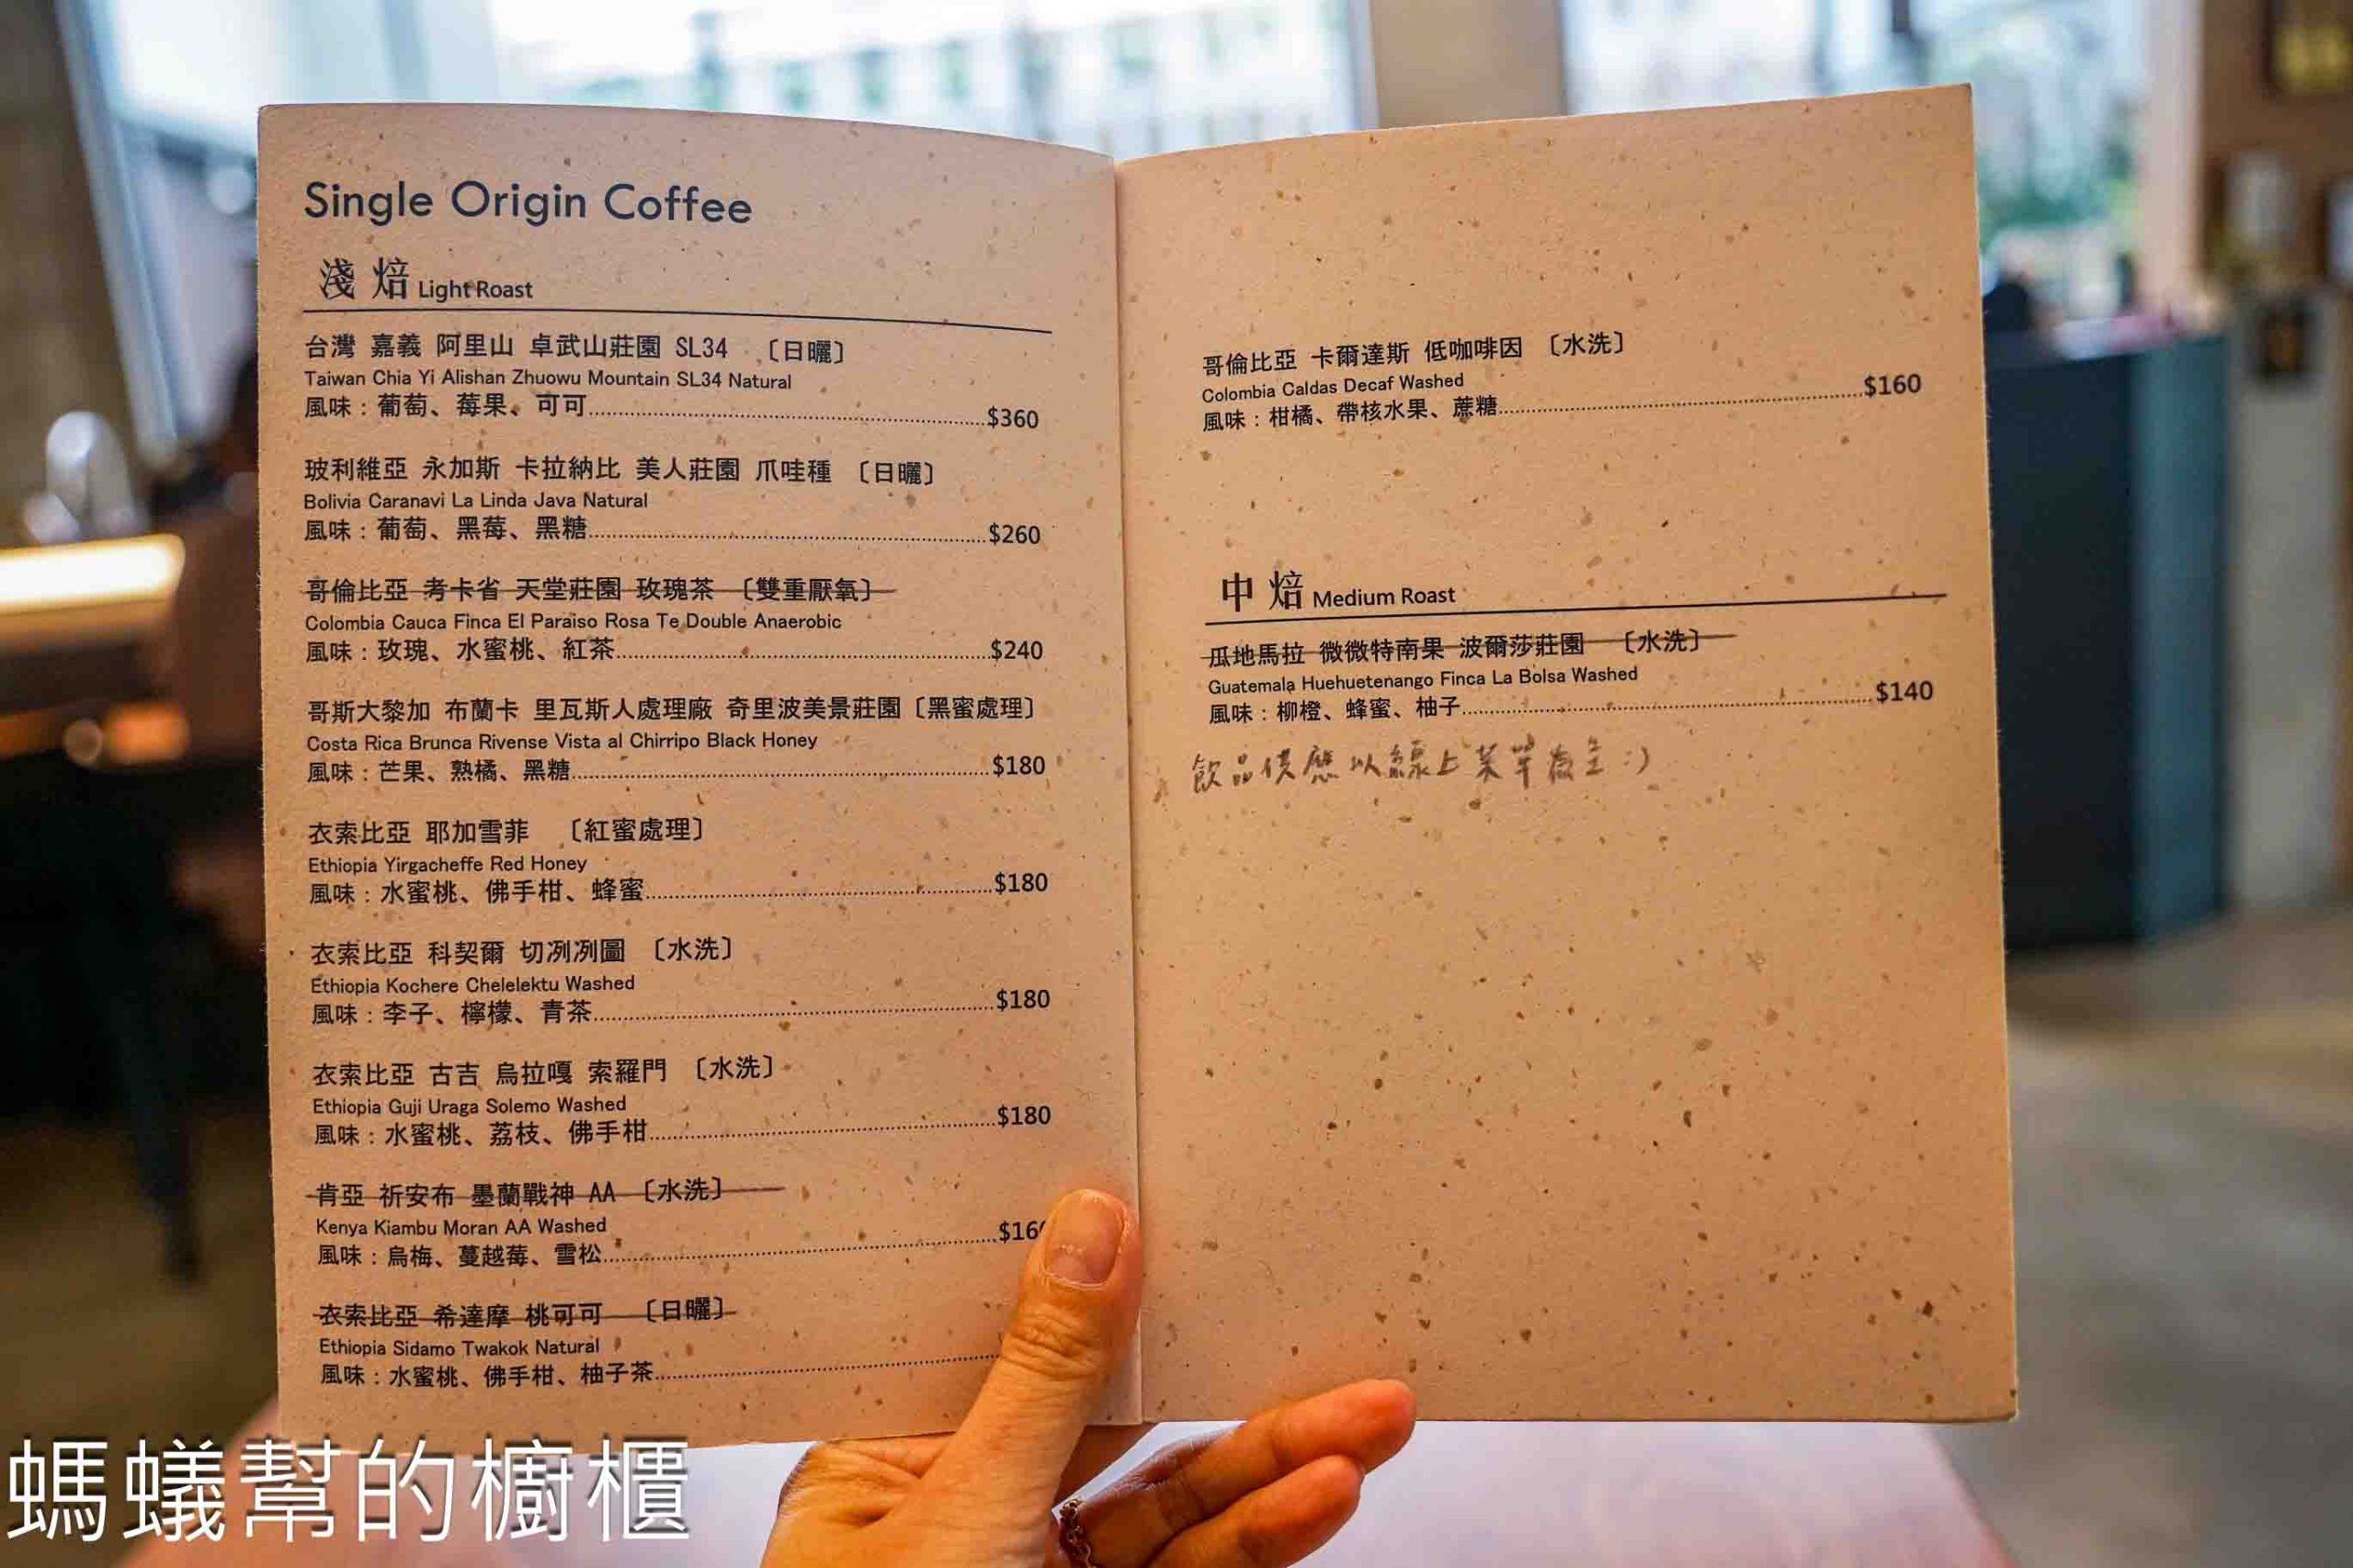 Single Origin Coffee
淺 焙 Light Roast
台灣 嘉義 阿里山 卓武山莊園 SL34 〔日曬〕
Taiwan Chia Yi Alishan Zhuowu Mountain SL34 Natural
風味：葡萄、莓果、可可........................$360
玻利維亞 永加斯 卡拉納比 美人莊園 爪哇種 〔日曬〕
Bolivia Caranavi La Linda Java Natural
風味：葡萄、黑莓、黑糖........................$260
哥倫比亞 考卡省 天堂莊園 玫瑰茶 〔雙重厭氧〕
Colombia Cauca Finca El Paraiso Rosa Te Double Anaerobic
風味：玫瑰、水蜜桃、紅茶........................$240
哥斯大黎加 布蘭卡 里瓦斯人處理廠 奇里波美景莊園〔黑蜜處理〕
Costa Rica Brunca Rivense Vista al Chirripo Black Honey
風味：芒果、熟橘、黑糖........................$180
衣索比亞 耶加雪菲 〔紅蜜處理〕
Ethiopia Yirgacheffe Red Honey
風味：水蜜桃、佛手柑、蜂蜜........................$180
衣索比亞 科契爾 切冽冽圖 〔水洗〕
Ethiopia Kochere Chelelektu Washed
風味：李子、檸檬、青茶........................$180
衣索比亞 古吉 烏拉嘎 索羅門 〔水洗〕
Ethiopia Guji Uraga Solemo Washed
風味：水蜜桃、荔枝、佛手柑........................$180
肯亞 祈安布 墨蘭戰神 AA 〔水洗〕
Kenya Kiambu Moran AA Washed
風味：烏梅、蔓越莓、雪松........................$160
衣索比亞 希達摩 桃可可 〔日曬〕
Ethiopia Sidamo Twakok Natural
風味：水蜜桃、佛手柑、柚子茶........................
哥倫比亞 卡爾達斯 低咖啡因 〔水洗〕
Colombia Caldas Decaf Washed
風味：柑橘、帶核水果、蔗糖........................$160
中 焙 Medium Roast
瓜地馬拉 微微特南果 波爾莎莊園 〔水洗〕
Guatemala Huehuetenango Finca La Bolsa Washed
風味：柳橙、蜂蜜、柚子........................$140
飲品供應以線上菜單為主 :)
螞蟻幫的櫥櫃